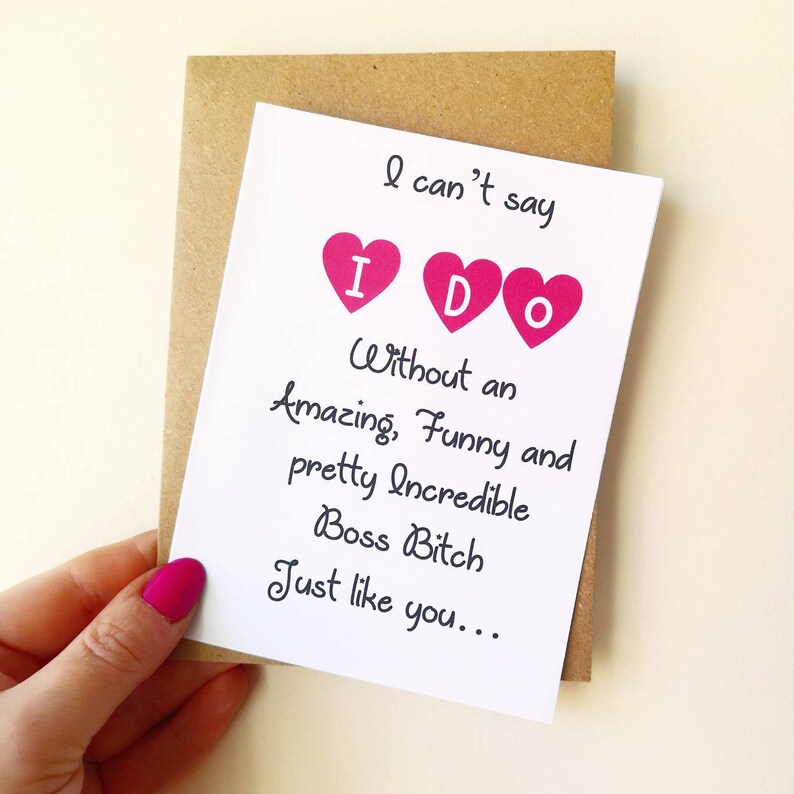 I can't say
I DO
Without an
Amazing, Funny and
pretty Incredible
Boss Bitch
Just like you...